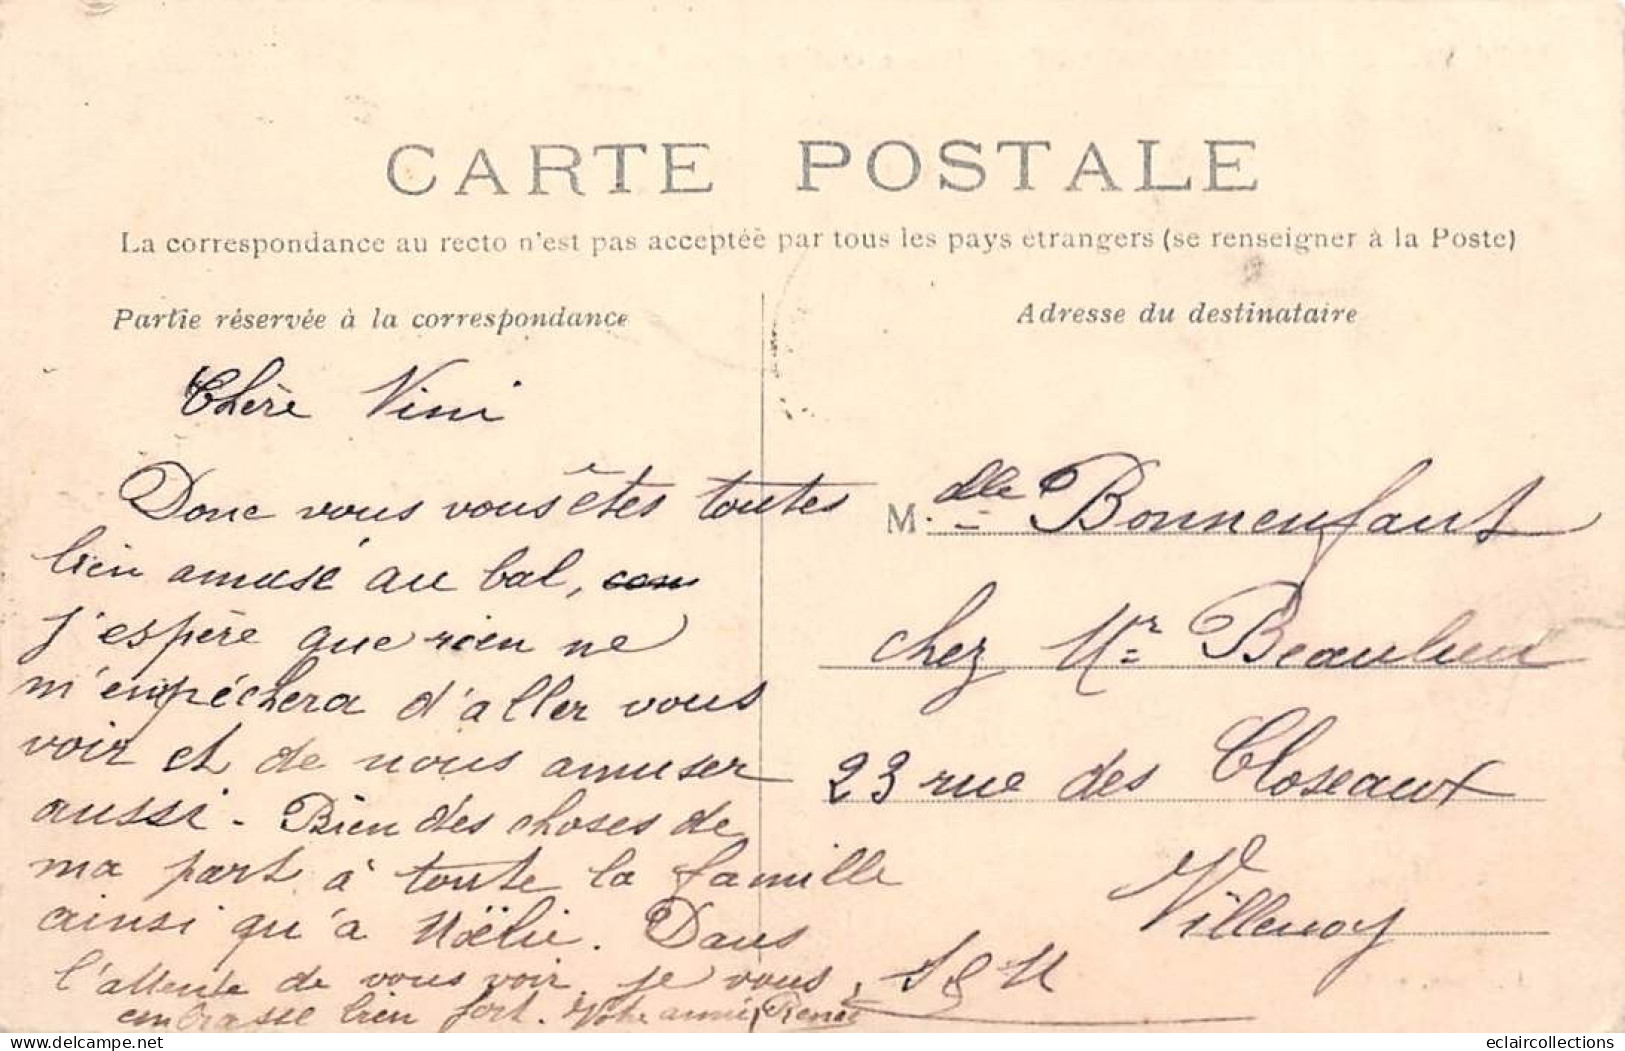 CARTE POSTALE
La correspondance au recto n'est pas acceptéè par tous les pays etrangers (se renseigner à la Poste)
Partie réservée à la correspondance
Adresse du destinataire
Chère Nini
Donc vous vous êtes toutes
bien amusé au bal,
j'espère que rien ne
m'empéchera d'aller vous
voir et de nous amuser
aussi. Bien des choses de
ma part à toute la famille
ainsi qu'à Noëlie. Dans
l'attente de vous voir je vous
embrasse bien fort. Votre amie, Renée
M.dlle Bonnenfant
chez Mr Beaulieu
23 rue des Closeaux
Villenoy
S & M
eclaircollections